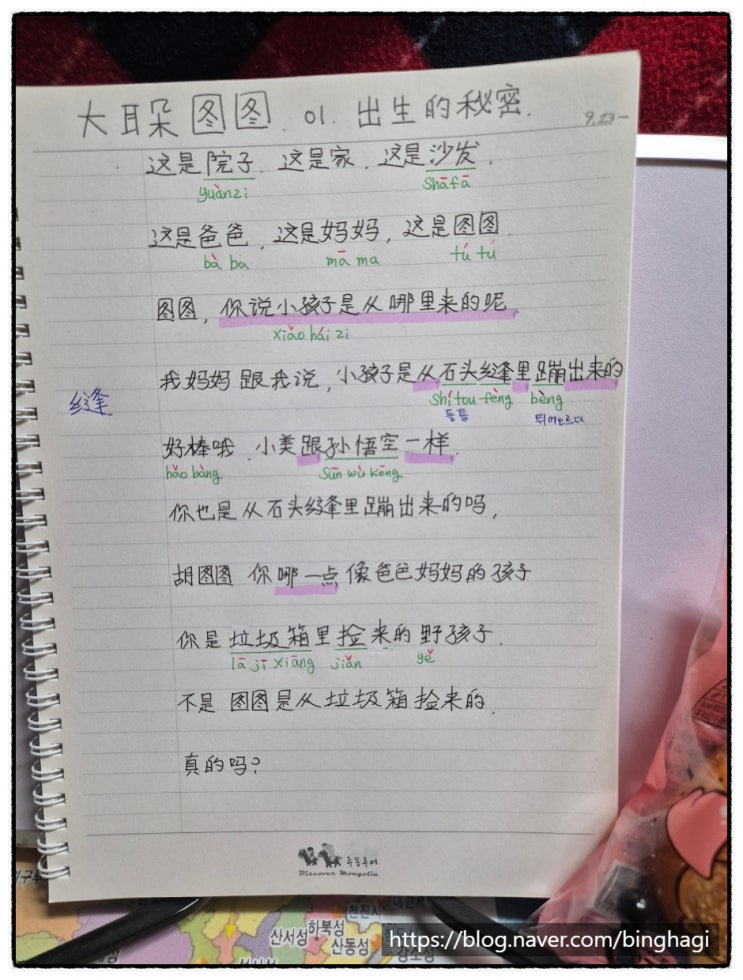 大耳朵图图. 01. 出生的秘密.
9.23-
这是院子. 这是家. 这是沙发.
yuànzi shāfā
这是爸爸, 这是妈妈, 这是图图.
bà ba mā ma tú tú
图图, 你说小孩子是从哪里来的呢.
xiǎo hái zi
我妈妈跟我说, 小孩子是从石头缝里蹦出来的
缝 shí tou fèng bèng
돌틈 튀어오르다
好棒哦. 小美跟孙悟空一样.
hǎo bàng sūn wù kōng
你也是从石头缝里蹦出来的吗,
胡图图 你哪一点像爸爸妈妈的孩子
你是垃圾箱里捡来的野孩子.
lā jī xiāng jiǎn yě
不是 图图是从垃圾箱捡来的.
真的吗?
Discover Mongolia
산서성 하북성 산동성
https://blog.naver.com/binghagi